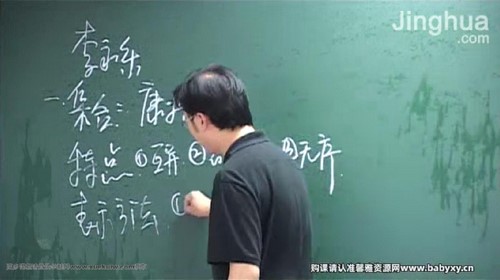 Jinghua
.com
李永乐
一、集合：康
特点①互异②③无序
表示方法①
购课请认准馨雅资源网www.babyxy.cn